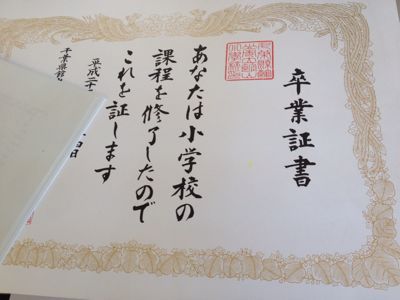 卒業証書
あなたは小学校の
課程を修了したので
これを証します
平成二十
千葉県館